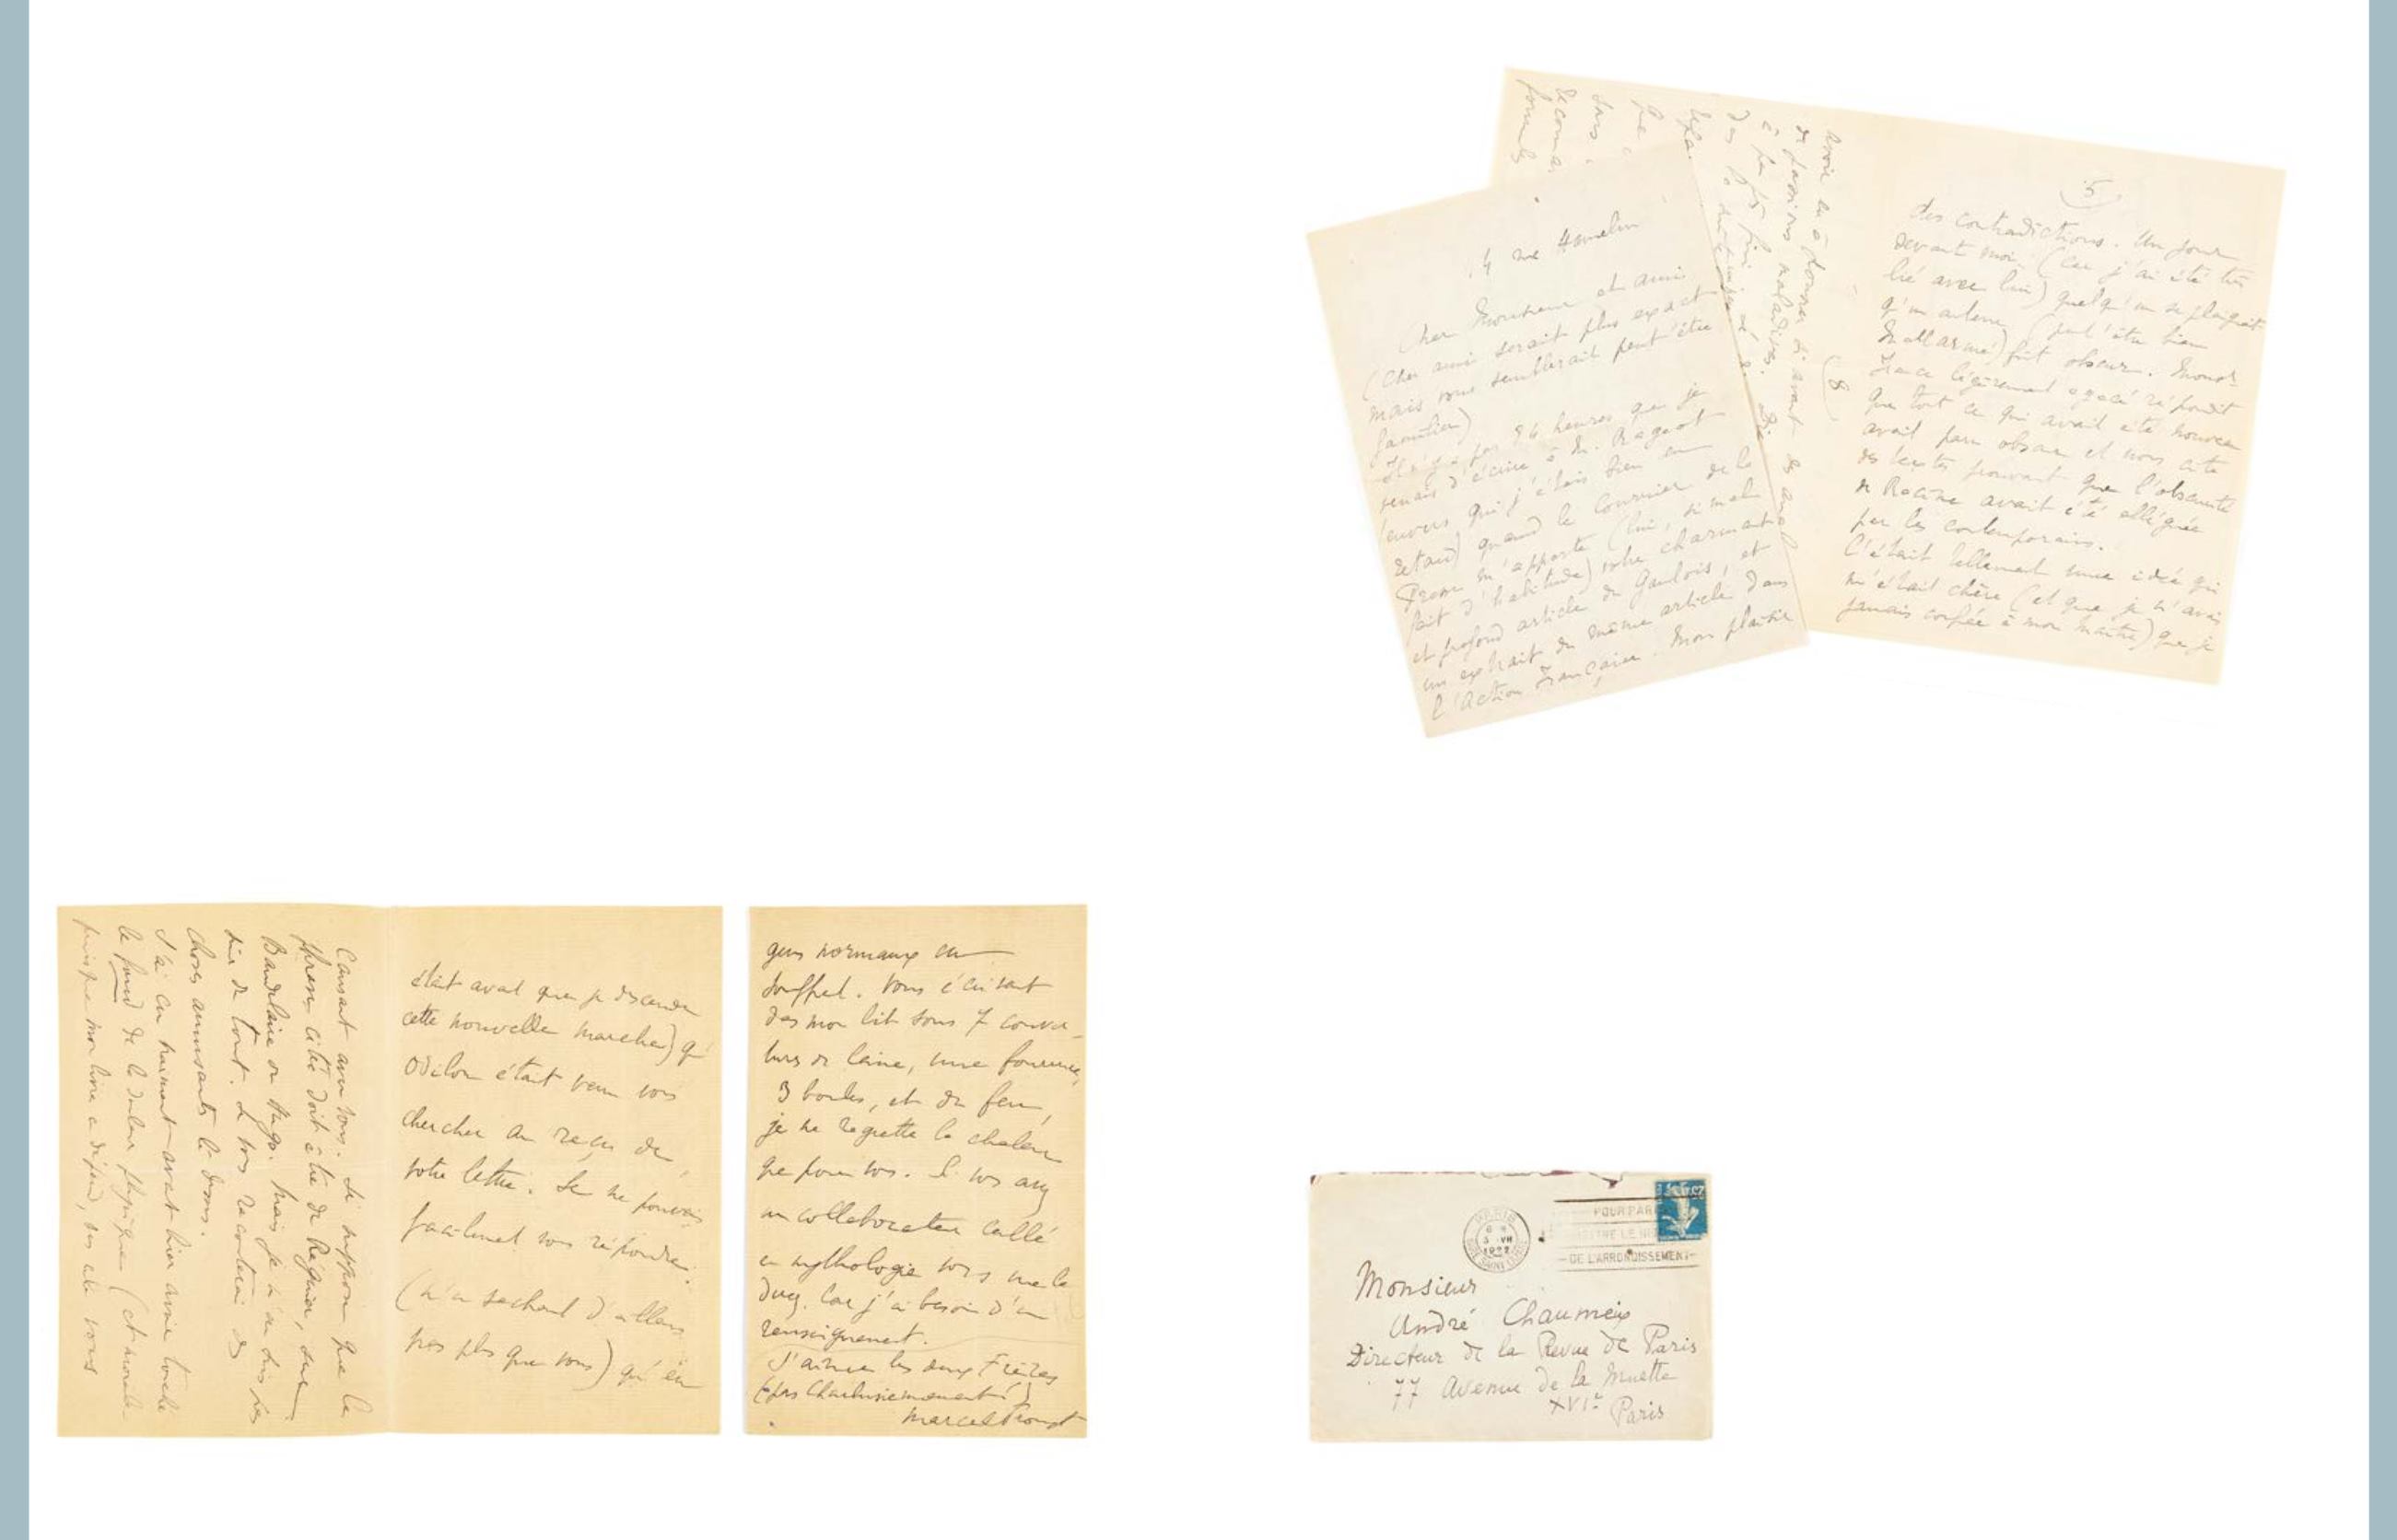 avoir eu à donner si avant
de passions maladives.
(8)
(5)
des contradictions. Un jour
devant moi (car j'ai été très
lié avec lui) quelqu'un se plaignait
qu'un auteur (peut'être bien
Mallarmé) fut obscur. Monsr
France légèrement agacé répondit
que tout ce qui avait été nouveau
avait paru obscur et nous cita
des textes prouvant que l'obscurité
de Racine avait été alléguée
par les contemporains.
C'était tellement une idée qui
m'était chère (et que je n'avais
jamais confiée à mon maître) que je
4 rue Hamelin
Cher Monsieur et ami
(Cher ami serait plus exact
mais vous semblerait peut'être
familier)
Il n'y a pas 24 heures que je
venais d'écrire à M. Rageot
(envers qui j'étais bien en
retard) quand le Courrier de la
Presse m'apporte (lui, si mal
fait d'habitude) votre charmant
et profond article du Gaulois, et
un extrait du même article dans
l'Action Française. Mon plaisir
Causant avec vous. Je suppose que la
phrase citée doit être de Régnier, sur
Baudelaire ou Hugo. Mais je n'en suis pas
sûr du tout. Je vous raconterai des
choses amusantes là-dessus.
J'ai cru vraiment avant hier avoir touché
le fond de la douleur physique (et morale
puisque mon livre en dépend,
était avant que je descende
cette nouvelle marche) qu'
Odilon était venu vous
chercher au reçu de
votre lettre. Je ne pouvais
facilement vous répondre
(n'en sachant d'ailleurs
pas plus que vous) qu'en
gens normaux en
souffrent. Vous écrivant
dans mon lit sous 7 couver-
tures de laine, une fourrure,
3 boules, et du feu,
je ne regrette la chaleur
que pour vous. Si vous avez
un collaborateur calé
en mythologie vous me le
direz. Car j'ai besoin d'un
renseignement.
J'aime les deux Frères
(pas Charlusiennement!)
Marcel Proust
PARIS
5 VII
1922
POUR PARIS
DE L'ARRONDISSEMENT
Monsieur
André Chaumeix
Directeur de la Revue de Paris
77 Avenue de la Muette
XVIe Paris